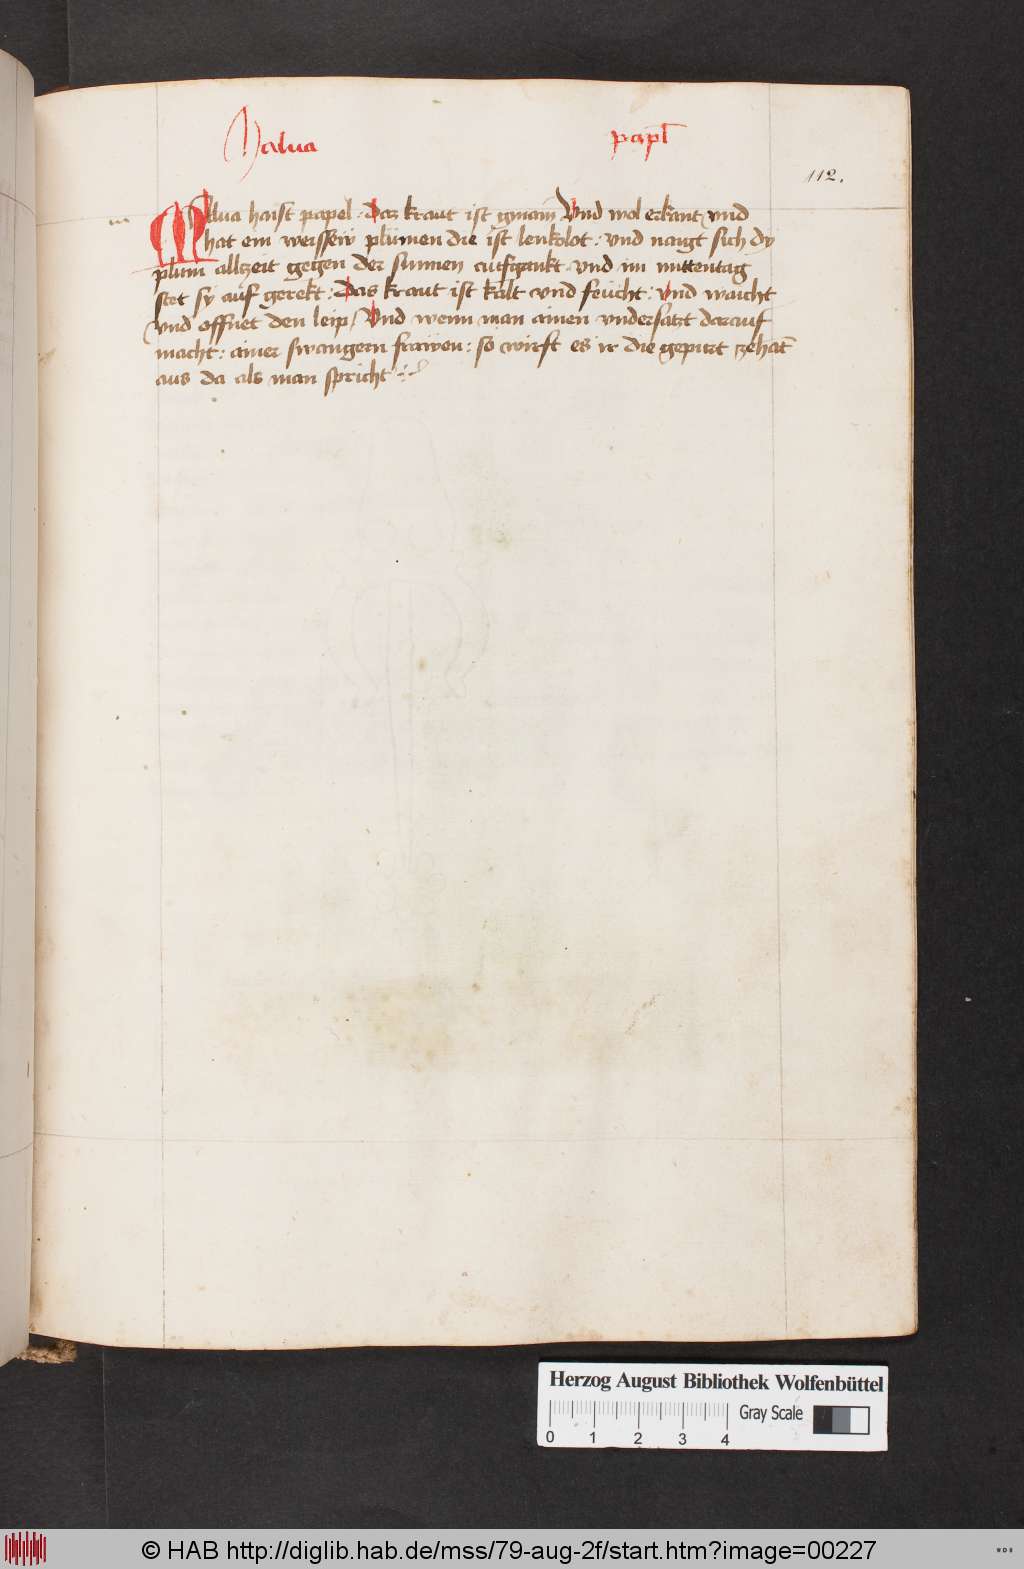 Malua papl̄
112.
Malua haist papel. Daz kraut ist gmain Vnd wol erkant vnd
hat ein weissew plümen die ist lenkolot: vnd naigt sich dy
plum allzeit gegen der sunnen aufgankt vnd im mittentag
stet sy auf gerekt: Das kraut ist kalt vnd feücht: vnd waicht
vnd offnet den leip / Vnd wenn man ainen vndersatzt darauf
macht: ainer swangern frawen: so wirft es ir die gepurt zehāt
aus da als man spricht
Herzog August Bibliothek Wolfenbüttel
Gray Scale
0 1 2 3 4
© HAB http://diglib.hab.de/mss/79-aug-2f/start.htm?image=00227